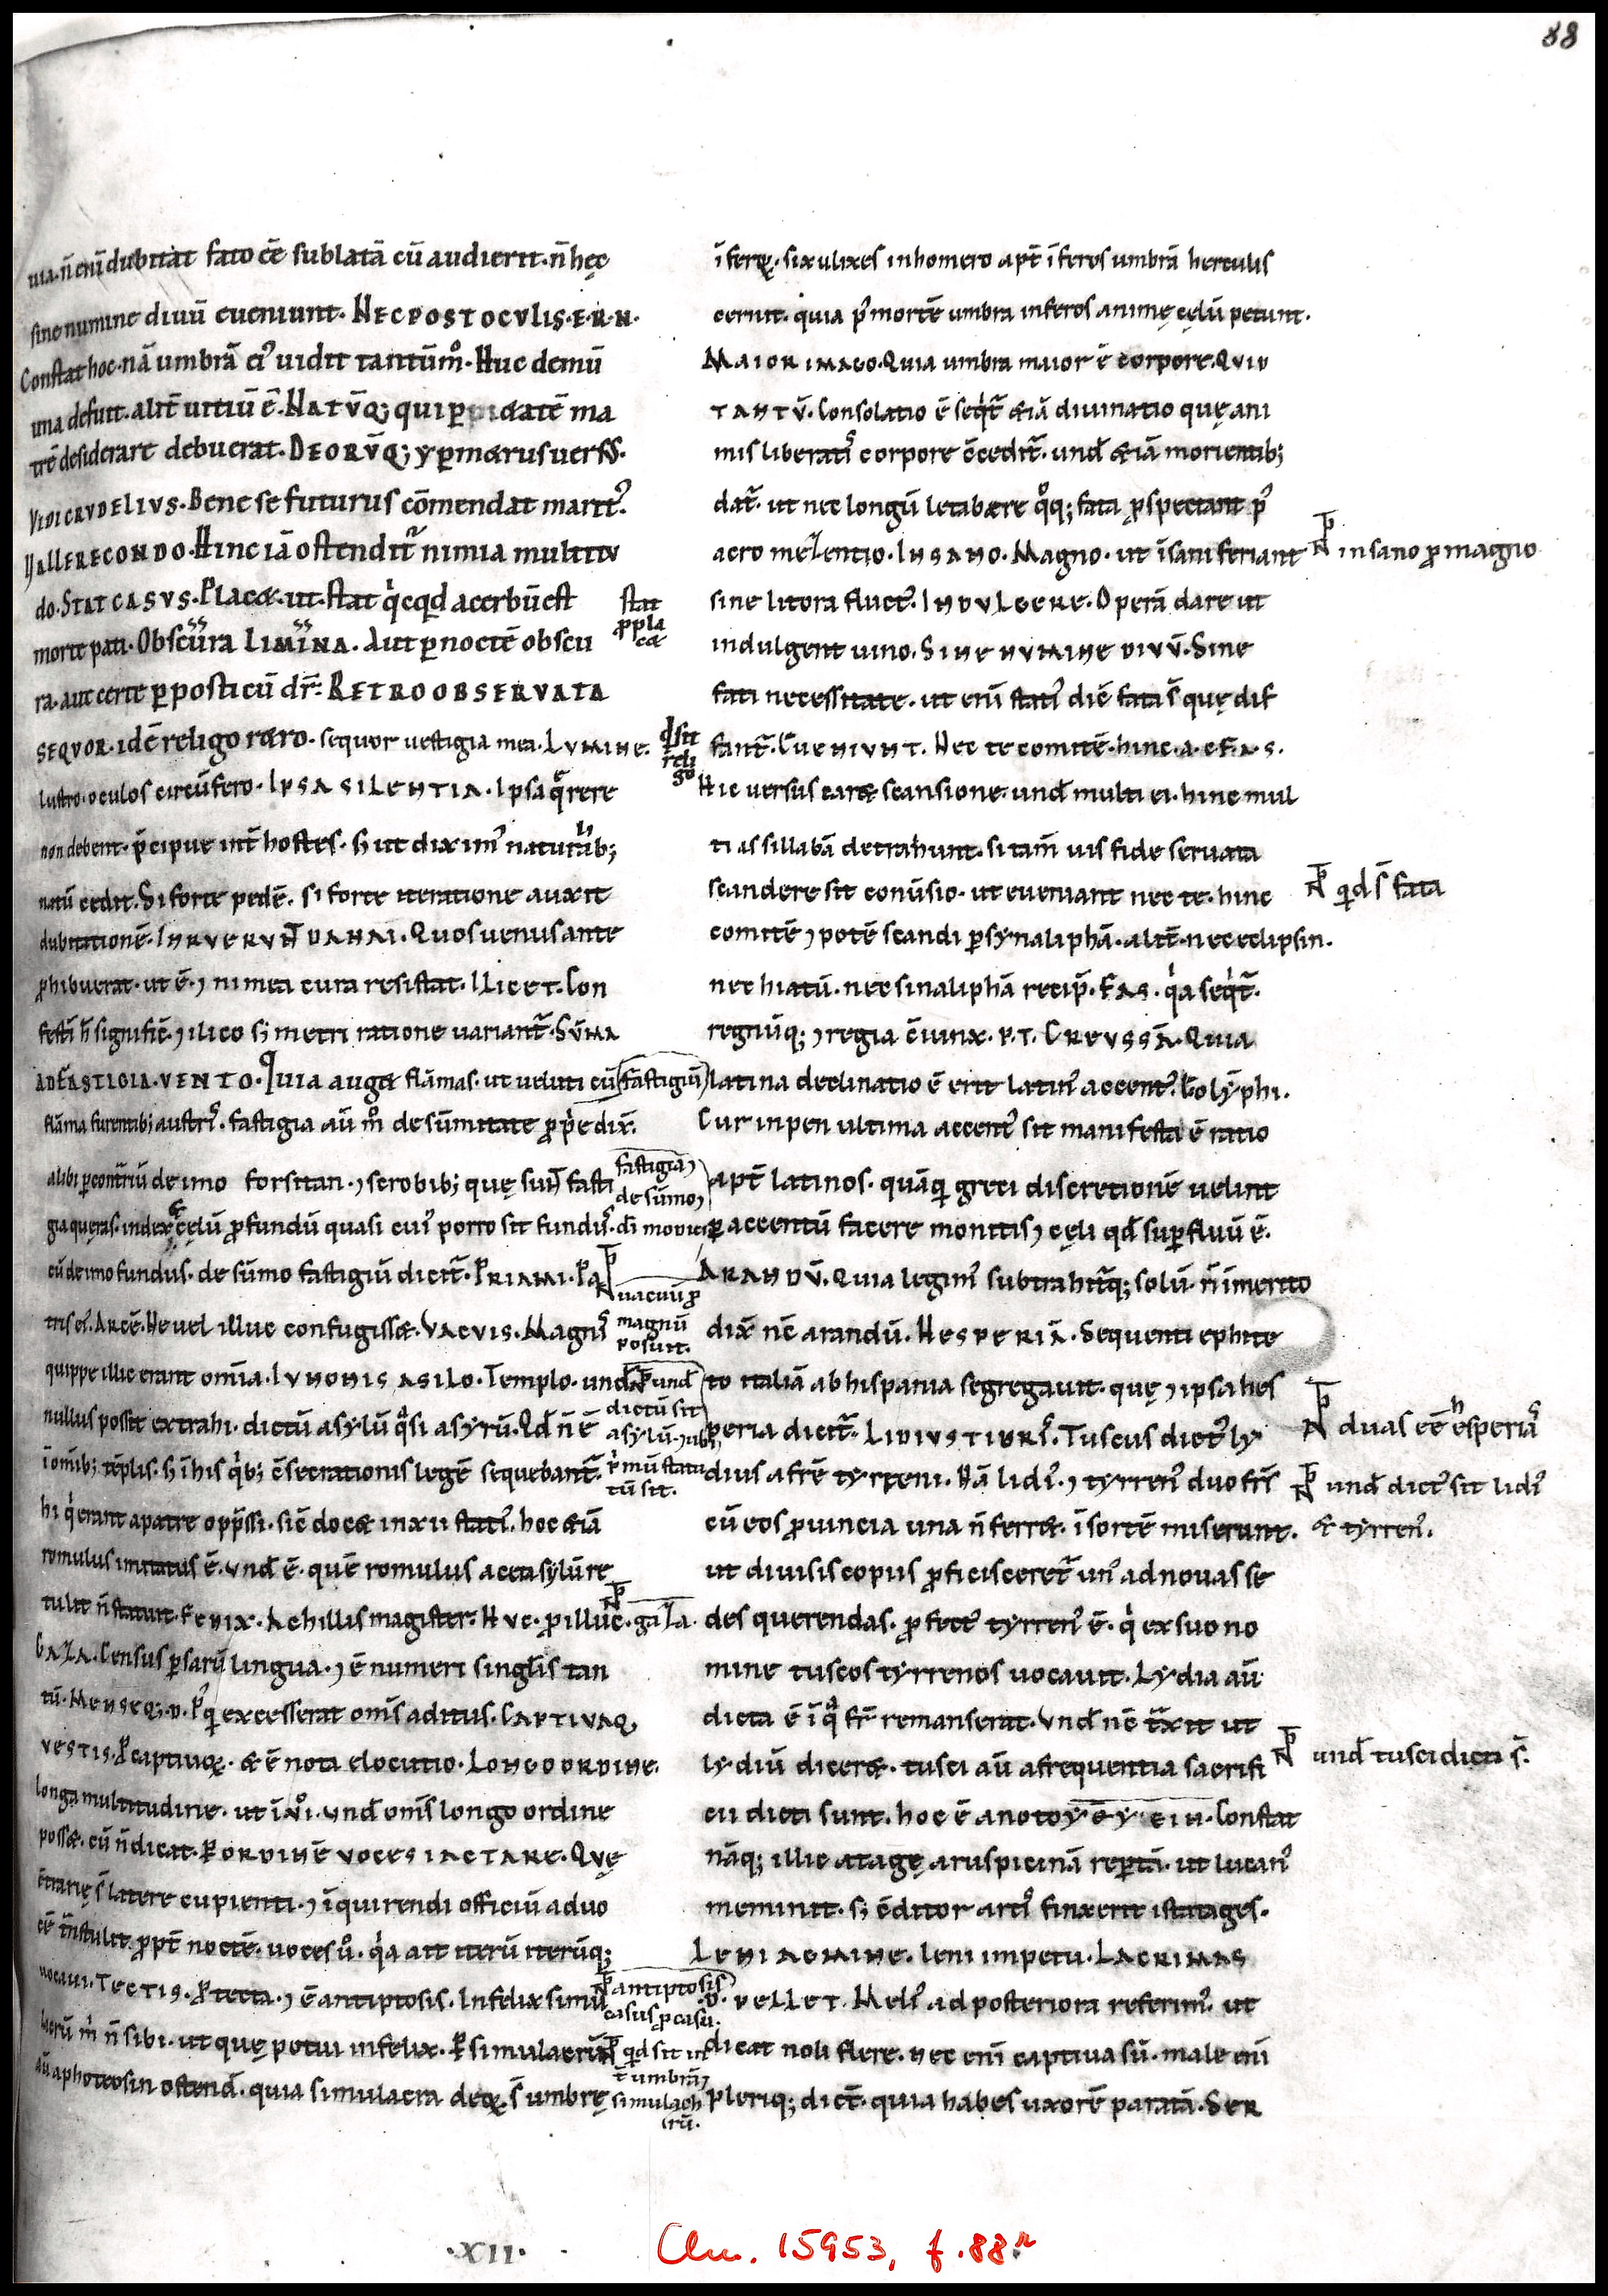 88
uia. n̄ eni dubitat fato eē sublatā cū audierit. n̄ hęc
sine numine diuū eueniunt. NEC POST OCVLIS. E. R. N.
Constat hoc. nā umbrā ei᾽ uidit tantūm̊. Huc demū
una defuit. alit̄ uitiū ē. NATV̄Q; qui p pietatē ma
trē desiderare debuerat. DEORV̄Q; yꝑmetrus uersꝰ.
VIDI CRVDELIVS. Bene se futurus cōmendat martꝰ.
VALLE RECONDO. Hinc iā ostendit̄ nimia multitu
do. STAT CASVS. Placet. ut. stat q̇cqd acerbū est
morte pati. Obscura LIMINA. Aut ꝑ noctē obscu
ra. aut certe ꝑ posticū dr̄. RETRO OBSERVATA
SEQVOR. idē religo raro. sequor uestigia mea. LVMINE.
lustro. oculos circūfero. IPSA SILENTIA. Ipsa q̄ rere
non debent. p̄cipue int̄ hostes. s; ut dixim᾽ naturalib;
metū cedit. Si forte pedē. si forte iteratione auxit
dubitationē. INRVERVN̄T DANAI. Quos uenus ante
ꝓhibuerat. ut ē. ⁊ ni mea cura resistat. ILICET. Con
festī h̄ signifīc. ⁊ ilico s; metri ratione uariant̄. SV̄MA
AD FASTIGIA. VENTO. Quia auget flāmas. ut ueluti cū
flāma furentib; austrꝰ. fastigia aū m̊ de sūmitate ꝓp̄e dix̄.
alibi ꝑ contrariū de imo forsitan. ⁊ scrobib; quę sint fasti
gia queras. index et cęlū ꝓfundū quasi cui᾽ porro sit fundꝰ. di
cū de imo fundus. de sūmo fastigiū dicit̄. PRIAMI. Pa
tris ei᾽. Arcē. Ne uel illuc confugisset. VACVIS. Magnꝰ
quippe illic erant omīa. IVNONIS ASILO. Templo. und
nullus possit extrahi. dictū asylū q̊si asyrū. Qd n̄ ē
ī omīb; tēplis. s; ī his q̇b; cōsecrationis legē sequebant̄.
hi q̇ erant a patre opp̄ssi. sic docet in XII statiꝰ. hoc etiā
romulus imitatus ē. und ē. quē romulus acer asylū re
tulit n̄ statuit. FENIX. Achillis magister. HVC. ꝓ illuc.
GAZA. Census ꝑsarū lingua. ⁊ ē numeri singl̄is tan
tū. MENSEQ; D. Pꝰ q̨ excesserat om̄s aditus. CAPTIVAQ,
VESTIS. P captiuoꝝ. et ē nota elocutio. LONGO ORDINE.
longa multitudine. ut ī VI. und om̄s longo ordine
posset. cū n̄ dicat. P ORDINĒ VOCES IACTARE. QVĘ
cōtrarię s̄ latere cupienti. ⁊ īquirendi officiū ad uo
cē trāstulit ꝓpt̄ noctē. uoces ů. q̇a ait iterū iterūq;
uocaui. TECTIS. ꝓ tecta. ⁊ ē antiptosis. Infelix simu
lacrū m̍ n̄ sibi. ut quę potui infelix. P simulacrū
aū aphoteosin ostend. quia simulacra deoꝝ s̄ umbrę
stat
ꝓ pla
cet
qd sit
reli
go
fastigiū
fastigia ⁊
de sūmo ⁊
uacuū ꝓ
magnū
posuit.
und
dictū sit
asylū. ⁊ ubi
p̍mū statu
tū sit.
gaza.
antiptosis
casus ꝓ casu.
qd sit in
t̄ umbrā ⁊
simulach
rū.
īferoꝝ. sic ulixes in homero apt̄ īferos umbrā herculis
cernit. quia pꝰ mortē umbra inferos animę cęlū petunt.
MAIOR IMAGO. Quia umbra maior ē corpore. QVID
TANTV̄. Consolatio ē seq̇t̄ etiā diuinatio quę ani
mis liberatꝰ corpore cōcedit̄. und etiā morientib;
dat̄. ut nec longū letabere q̊q; fata ꝓspectant pꝰ
acro mezentio. INSANO. Magno. ut īsani feriant
sine litora fluctꝰ. INDVLGERE. Operā dare ut
indulgent uino. SINE NVMINE DIVV̄. Sine
fati necessitate. ut enī statiꝰ diē fata s̄ quę dif
fant̄. EVENIVNT. NEC te comitē. hinc. a. c. F. A. S.
Hic uersus caret scansione. und multi ei. hinc mul
ti as sillabā detrahunt. si tam̄ uis fide seruata
scandere sit conūsio. ut eueniant nec te. hinc
comitē ⁊ potē scandi ꝑ synaliphā. alit̄. nec eclipsin.
nec hiatū. nec sinaliphā recip̄. FAS. q̇a seq̇t̄.
regnūq; ⁊ regia cōiunx. P. T. CREVSSĀ. Quia
latina declinatio ē erit latinꝰ accentꝰ. Ꞓolȳphi.
Cur in pen ultima accentꝰ sit manifesta ē ratio
apt̄ latinos. quāq̨ greci discretionē uelint
ꝑ accentū facere montis ⁊ cęli qd suꝑfluū ē.
ARANDV̄. Quia legimꝰ subtrahitq; solū. n̄ īmerito
dix̄ nc̄ arandū. HESPERIĀ. Sequenti ephite
to italiā ab hispania segregauit. quę ⁊ ipsa hes
peria dicit̄. LIDIVS TIBRꝰ. Tuscus dictꝰ ly
dius a frē tyrreni. Nā lidꝰ. ⁊ tyrrenꝰ duo frs̄
cū eos ꝓuincia una n̄ ferret. ī sortē miserunt.
ut diuisis copiis ꝓficisceret̄ unꝰ ad nouas se
des querendas. ꝓfectꝰ tyrrenꝰ ē. q̇ ex suo no
mine tuscos tyrrenos uocauit. Lydia aū
dicta ē ī q̊ fr̄ remanserat. und nc̄ t̄xit ut
lydiū diceret. tusci aū a frequentia sacrifi
cii dicti sunt. hoc ē ano toy ōy ein. Constat
nāq; illic a tagę aruspicinā reꝑtā. ut lucanꝰ
meminit. s; cōditor artꝰ finxerit ista tages.
LENI AGMINE. leni impetu. LACRIMAS
D. PELLET. Melꝰ ad posteriora referimꝰ. ut
dicat noli flere. nec enī captiua sū. male enī
pleriq; dict̄. quia habes uxorē paratā. SER
insano ꝓ magno
qd s̄ fata
duas eē hesperiaꝰ
und dictꝰ sit lidꝰ
et tyrrenꝰ.
und tusci dicti s̄.
.XII.
Clm. 15953, f. 88r